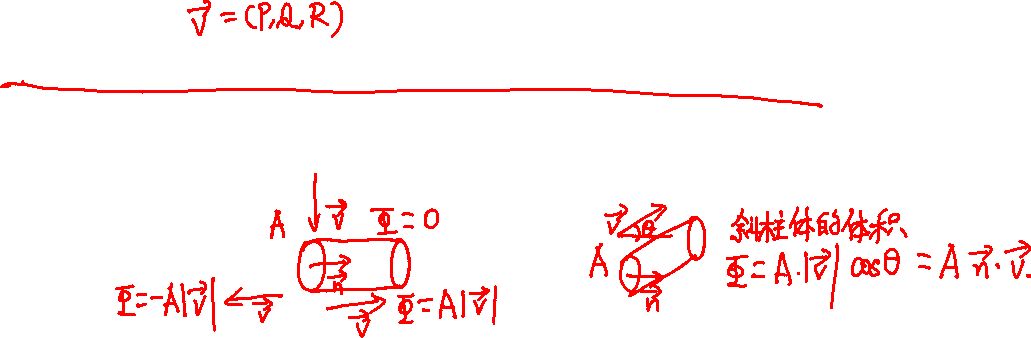 v⃗=(P,Q,R)
A v⃗ Φ=0
n⃗
Φ=-A|v⃗| v⃗ v⃗ Φ=A|v⃗|
v⃗ θ
A n⃗
斜柱体的体积
Φ=A·|v⃗|cosθ=A n⃗·v⃗.